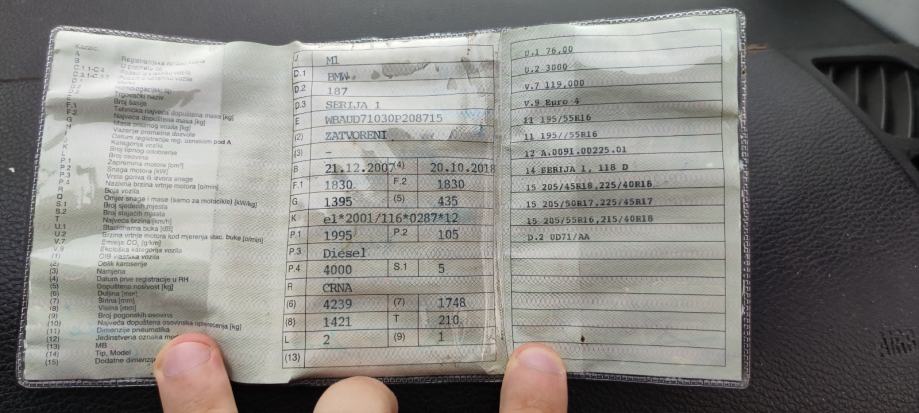 Kazalo:
A
B
Registarska
J M1
D.1 BMW
D.2 187
D.3 SERIJA 1
E WBAUD71030P208715
(2) ZATVORENI
(3) -
B 21.12.2007 (4) 20.10.2018
F.1 1830 F.2 1830
G 1395 (5) 435
K e1*2001/116*0287*12
P.1 1995 P.2 105
P.3 Diesel
P.4 4000 S.1 5
R CRNA
(6) 4239 (7) 1748
(8) 1421 T 210
L 2 (9) 1
(13)
U.1 76,00
U.2 3000
V.7 119,000
V.9 Euro 4
11 195/55R16
11 195//55R16
12 A.0091.00225.01
14 SERIJA 1, 118 D
15 205/45R18,225/40R18
15 205/50R17,225/45R17
15 205/55R16,215/40R18
D.2 UD71/AA
F.1 Tehnička najveća dopuštena masa [kg]
F.2 Najveća dopuštena masa [kg]
G Masa praznog vozila [kg]
H Važenje prometne dozvole
I Datum registracije reg. oznakom pod A
J Kategorija vozila
K Broj tipnog odobrenja
L Broj osovina
P.1 Zapremina motora [cm³]
P.2 Snaga motora [kW]
P.3 Vrsta goriva ili izvora snage
P.4 Nazivna brzina vrtnje motora [o/min]
R Boja vozila
Q Omjer snage i mase (samo za motocikle) [kW/kg]
S.1 Broj sjedećih mjesta
S.2 Broj stajaćih mjesta
T Najveća brzina [km/h]
U.1 Stacionarna buka [dB]
U.2 Brzina vrtnje motora kod mjerenja stac. buke [o/min]
V.7 Emisije CO₂ [g/km]
V.9 Ekološka kategorija vozila
(1) OIB vlasnika vozila
(2) Oblik karoserije
(3) Namjena
(4) Datum prve registracije u RH
(5) Dopuštena nosivost [kg]
(6) Duljina [mm]
(7) Širina [mm]
(8) Visina [mm]
(9) Broj pogonskih osovina
(10) Najveća dopuštena osovinska opterećenja [kg]
(11) Dimenzije pneumatika
(12) Jedinstvena oznaka
(13) MB
(14) Tip, Model
(15) Dodatne dimenzije